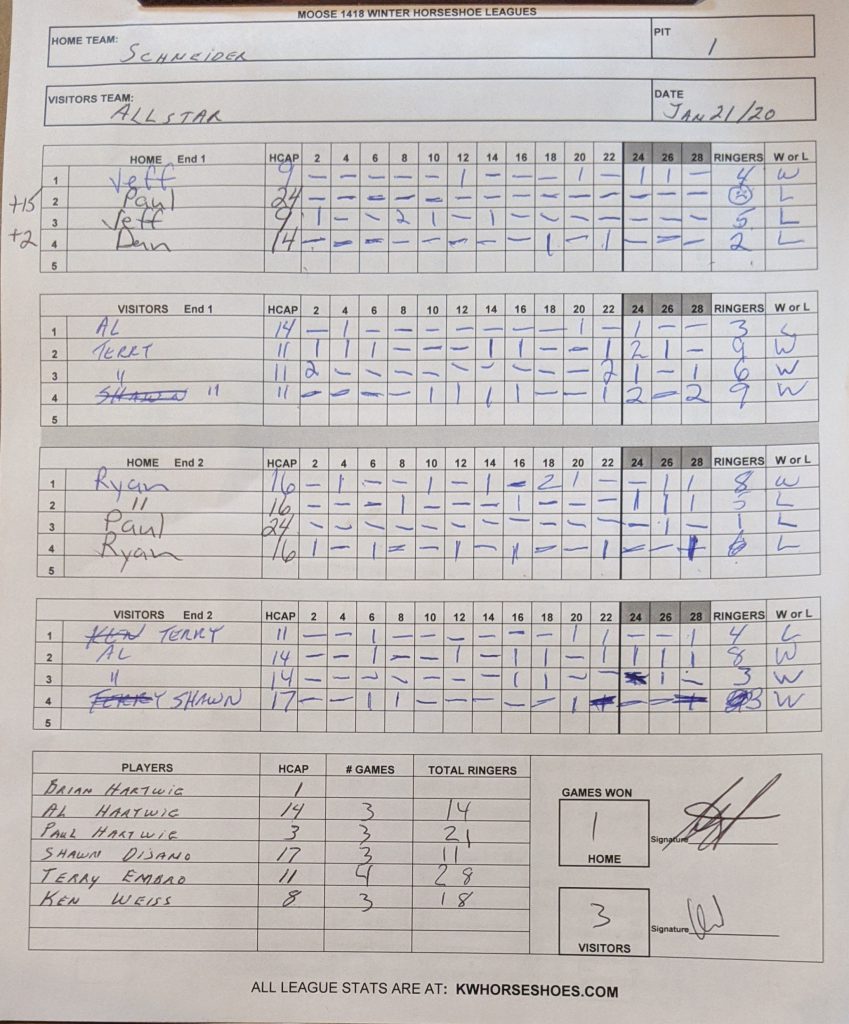 MOOSE 1418 WINTER HORSESHOE LEAGUES
HOME TEAM: SCHNEIDER PIT 1
VISITORS TEAM: ALLSTAR DATE JAN 21/20
HOME End 1 HCAP 2 4 6 8 10 12 14 16 18 20 22 24 26 28 RINGERS W or L
1 Jeff 9 – – – – – 1 – – – 1 – 1 1 – 4 W
+15 2 Paul 24 – – – – – – – – – – – – – – ☹ L
3 Jeff 9 1 – – 2 1 – 1 – – – – – – – 5 L
+2 4 Dan 14 – – – – – – – – 1 – 1 – – – 2 L
5
VISITORS End 1 HCAP 2 4 6 8 10 12 14 16 18 20 22 24 26 28 RINGERS W or L
1 AL 14 – 1 – – – – – – – 1 – 1 – – 3 L
2 TERRY 11 1 1 1 – – – 1 1 – – 1 2 1 – 9 W
3 " 11 2 – – – – – – – – – 2 1 – 1 6 W
4 SHAWN " 11 – – – – 1 1 1 1 – – 1 2 – 2 9 W
5
HOME End 2 HCAP 2 4 6 8 10 12 14 16 18 20 22 24 26 28 RINGERS W or L
1 Ryan 16 – 1 – – 1 – 1 – 2 1 – – 1 1 8 W
2 " 16 – – – 1 – – – 1 – – – 1 1 1 5 L
3 Paul 24 – – – – – – – – – – – – 1 – 1 L
4 Ryan 16 1 – 1 – – 1 – 1 – – 1 – – 1 6 L
5
VISITORS End 2 HCAP 2 4 6 8 10 12 14 16 18 20 22 24 26 28 RINGERS W or L
1 KEN TERRY 11 – – 1 – – – – – – 1 1 – – 1 4 L
2 AL 14 – – 1 – – 1 – 1 1 – 1 1 1 1 8 W
3 " 14 – – – – – – – 1 1 – – 1 – 3 W
4 TERRY SHAWN 17 – – 1 1 – – – – – 1 – – 3 W
5
PLAYERS HCAP # GAMES TOTAL RINGERS
BRIAN HARTWIG 1
AL HARTWIG 14 3 14
PAUL HARTWIG 3 3 21
SHAWN DIJANO 17 3 11
TERRY EMBRO 11 4 28
KEN WEISS 8 3 18
GAMES WON
1
HOME
Signature
3
VISITORS
Signature
ALL LEAGUE STATS ARE AT: KWHORSESHOES.COM